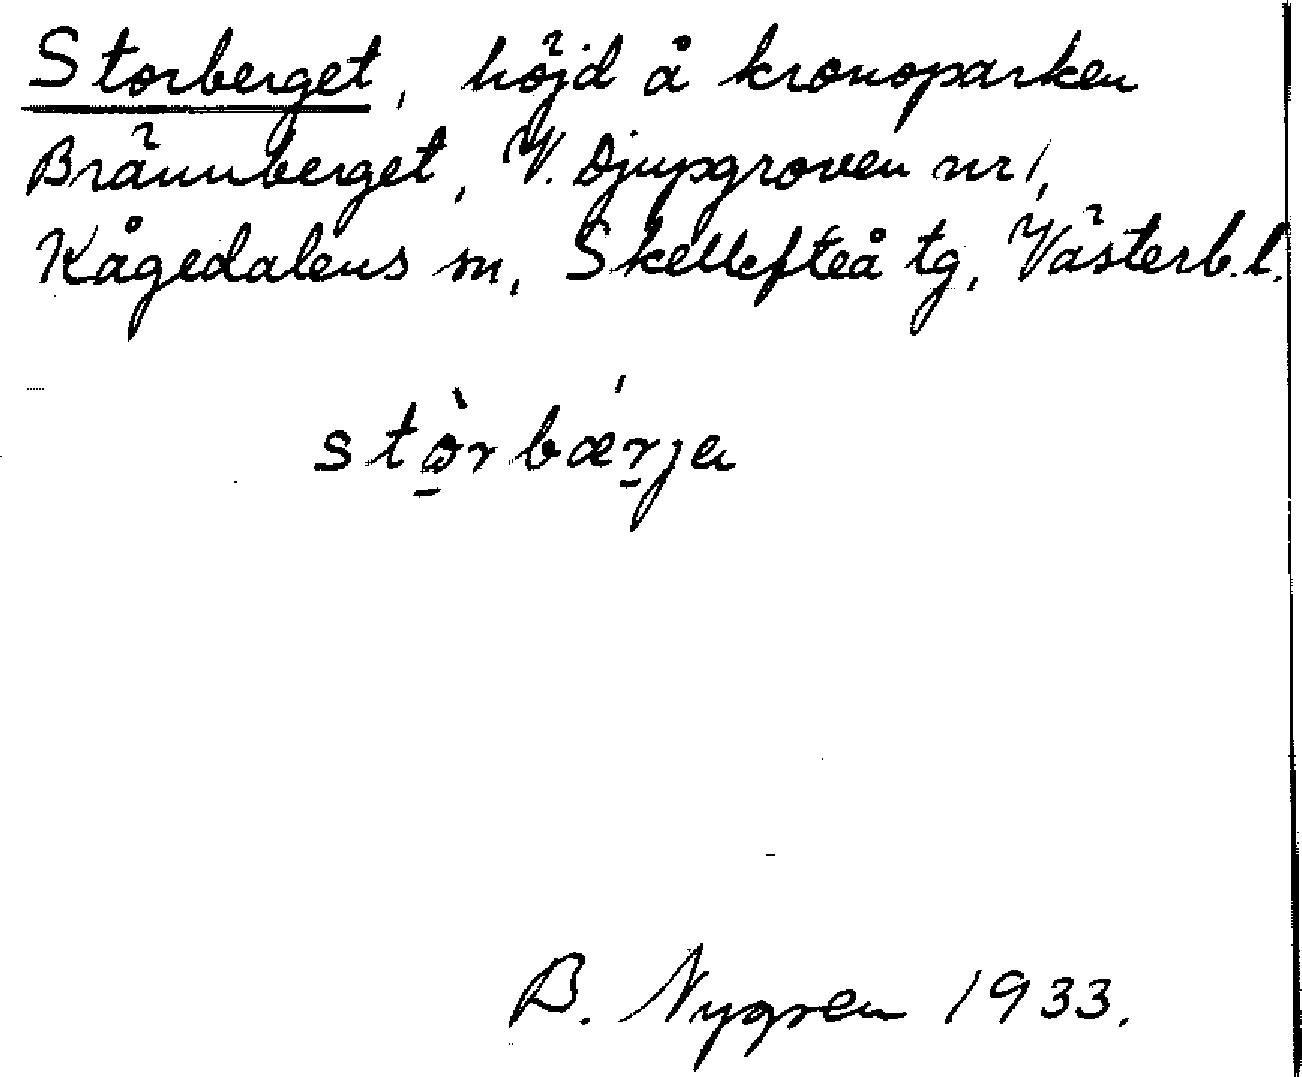 Storberget, höjd å kronoparken
Brännberget, V. Djupgroven nr 1,
Kågedalens sn, Skellefteå tg, Västerb. l.
stò̠rbæŕ̠ja
B. Nygren 1933.